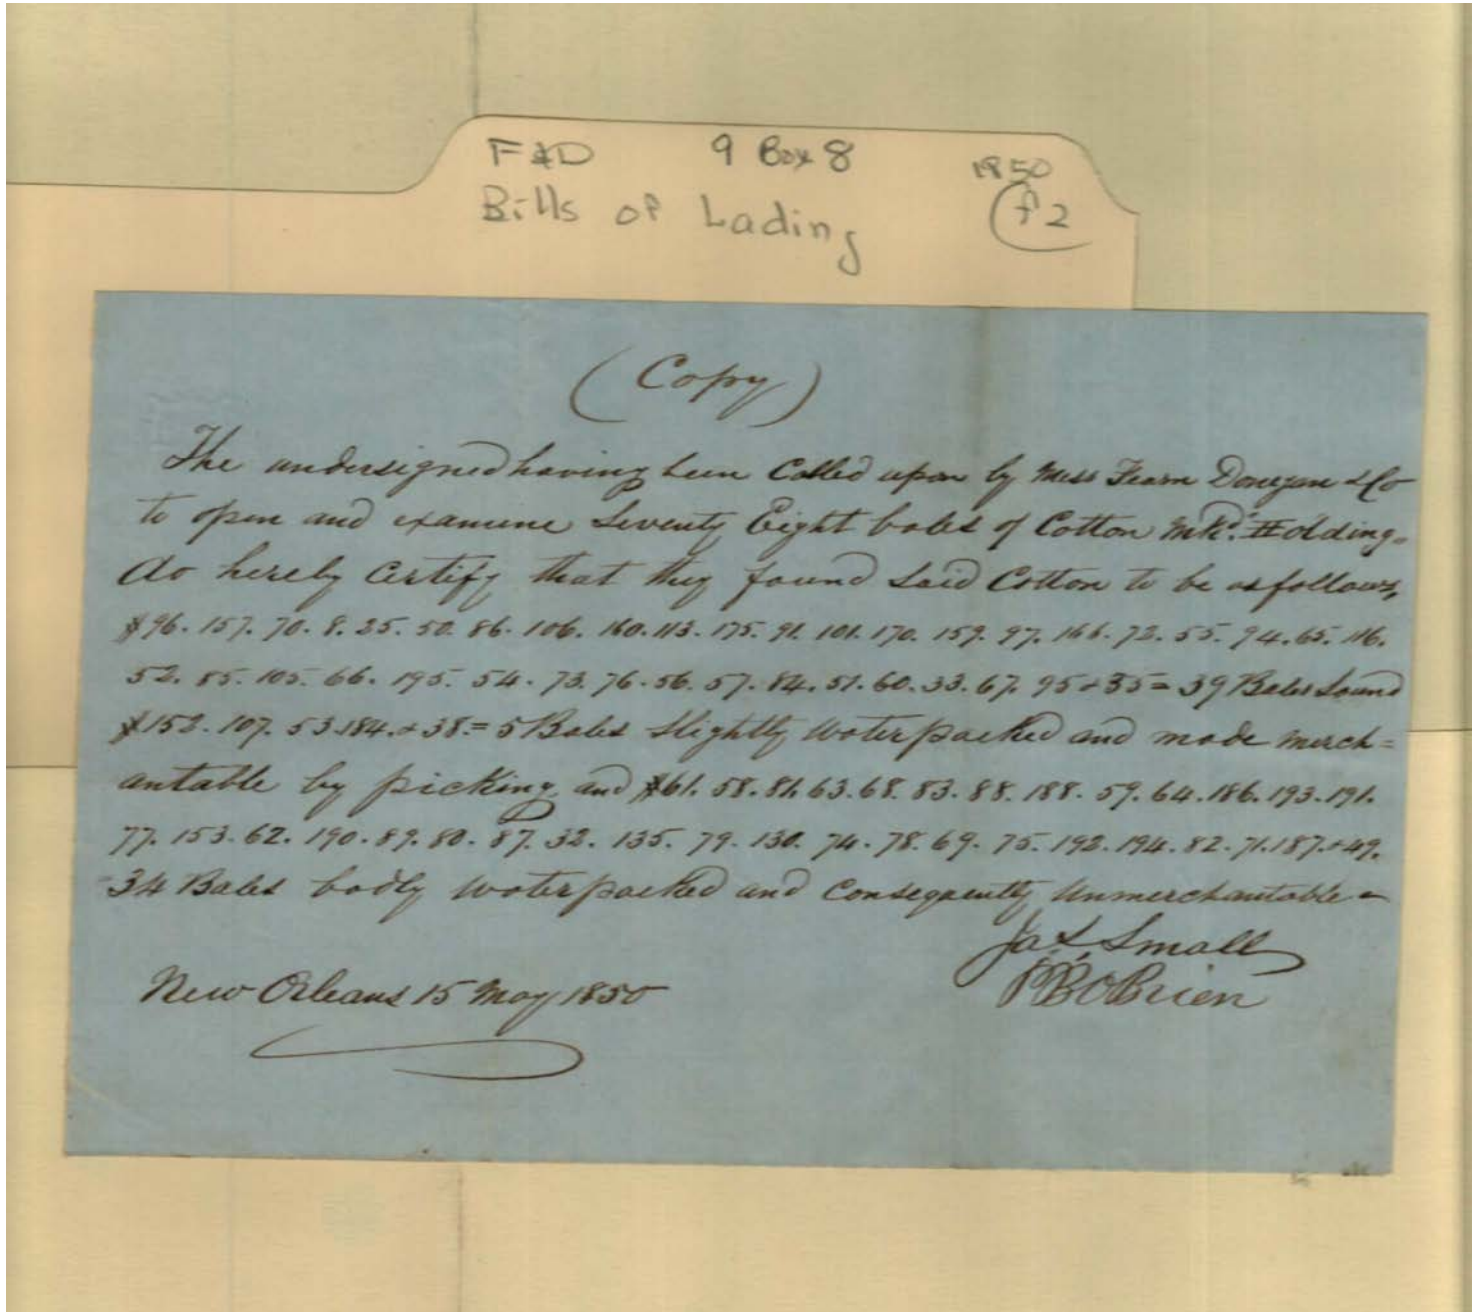 F&D 9 Box 8 1850
Bills of Lading f2
(Copy)
The undersigned having been Called upon by Mess Fearn Donegan & Co
to open and examine Seventy Eight bales of Cotton mkd. "Holding"
do hereby Certify that they found Said Cotton to be as follows,
#96. 157. 70. 8. 25. 50. 86. 106. 160. 113. 175. 91. 101. 170. 159. 97. 166. 72. 55. 94. 65. 116.
52. 85. 105. 66. 195. 54. 73. 76. 56. 57. 84. 51. 60. 33. 67. 95 & 35 = 39 Bales Sound
#152. 107. 53. 184. & 38. = 5 Bales Slightly Waterpacked and made merch=
antable by picking, and #61. 58. 81. 63. 68. 83. 88. 188. 59. 64. 186. 193. 191.
77. 153. 62. 190. 89. 80. 87. 32. 135. 79. 130. 74. 78. 69. 75. 192. 194. 82. 71. 187. & 49.
34 Bales badly Waterpacked and Consequently Unmerchantable -
Jas Small
P B OBrien
New Orleans 15 May 1850